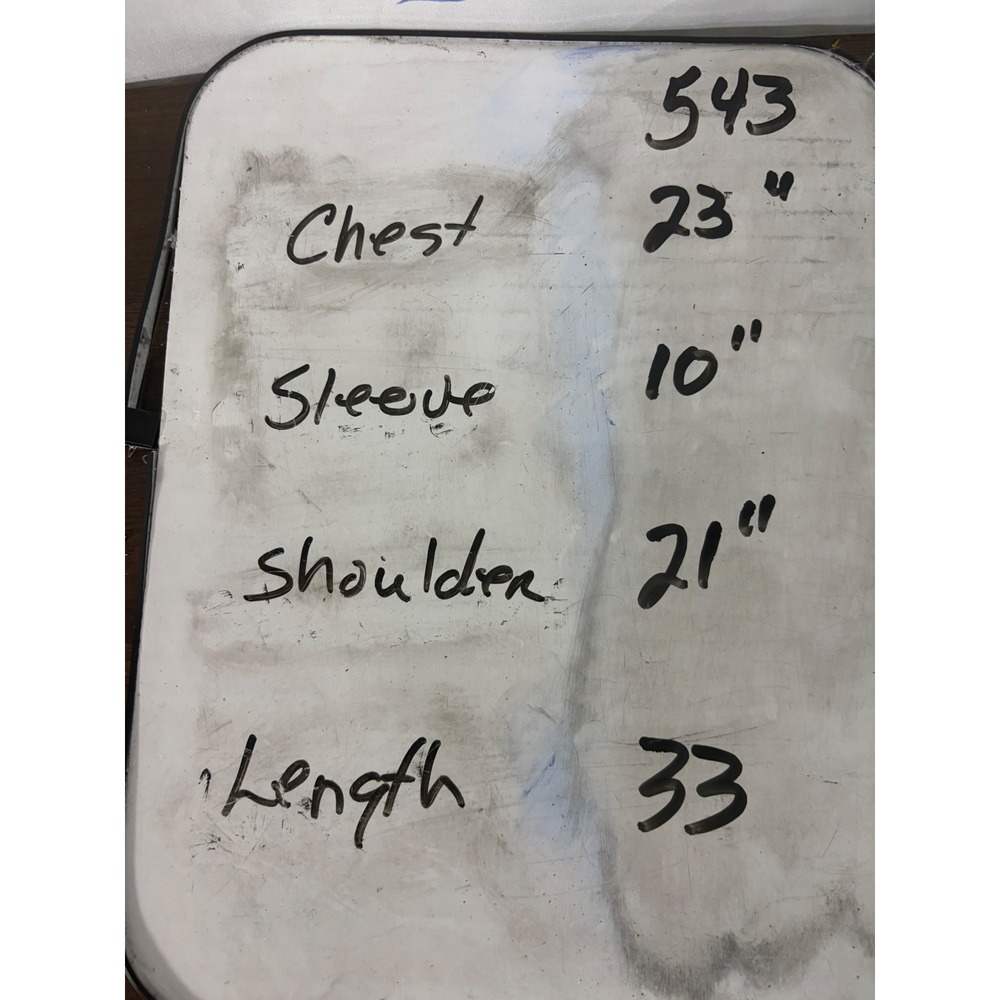 543
Chest 23"
Sleeve 10"
Shoulder 21"
Length 33